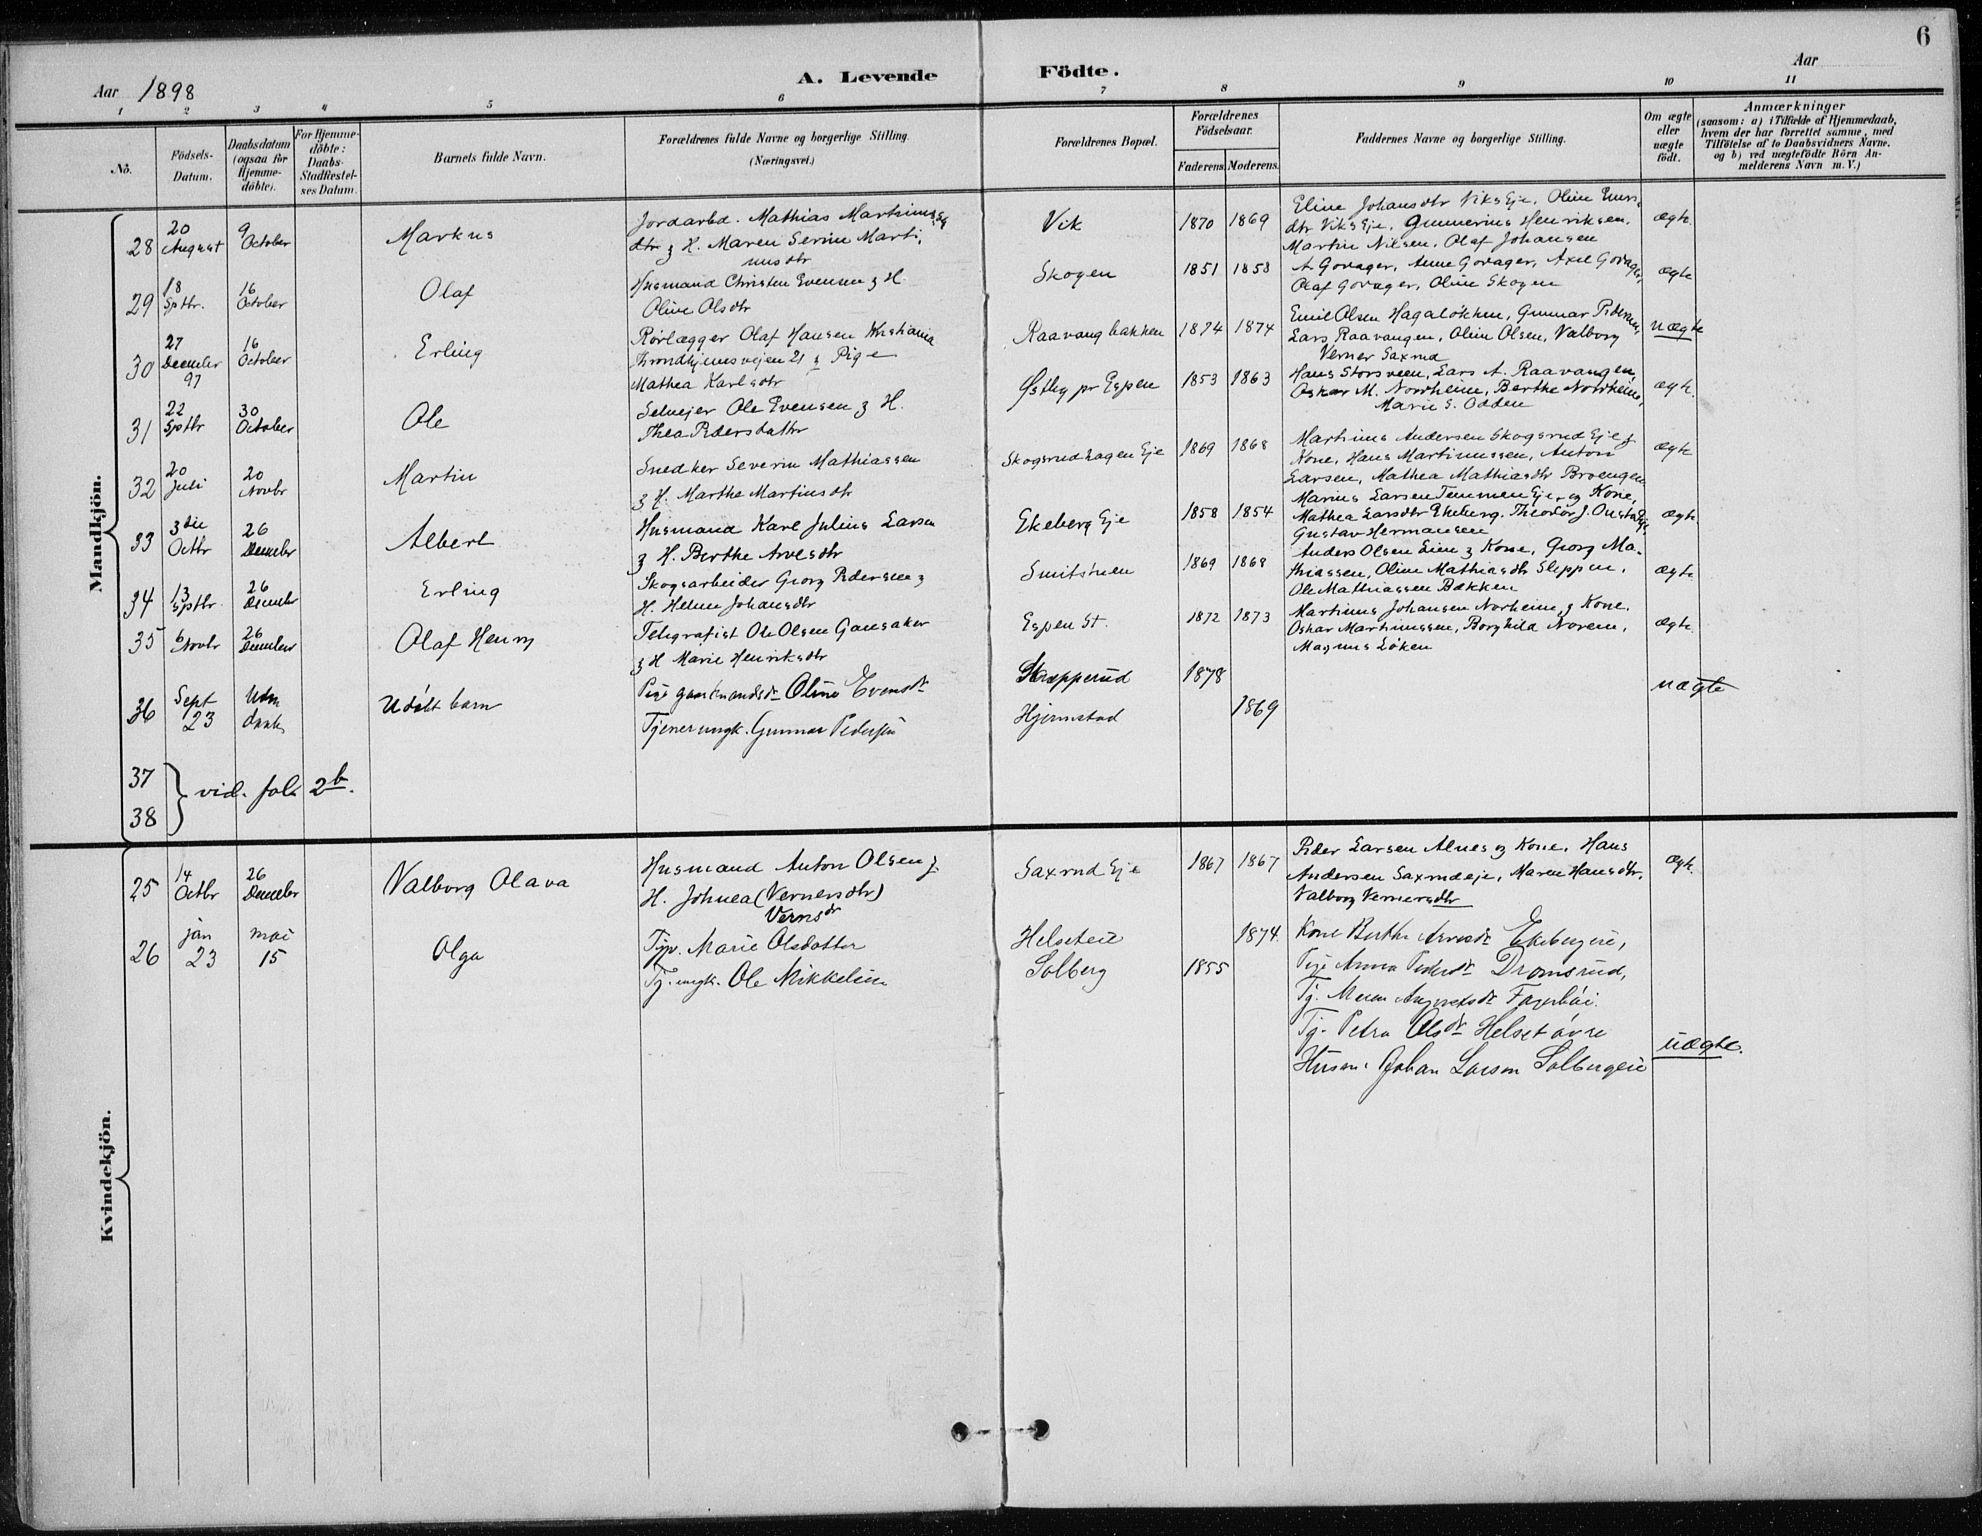 6
A. Levende Födte.
Aar 1898
Aar
1 2 3 4 5 6 7 8 9 10 11
No.
Födsels-Datum.
Daabsdatum (ogsaa for Hjemme-döbte).
For Hjemme-döbte: Daabs-Stadfæstel-ses Datum.
Barnets fulde Navn.
Forældrenes fulde Navne og borgerlige Stilling.
(Næringsvei.)
Forældrenes Bopæl.
Forældrenes Födselsaar.
Faderens. Moderens.
Faddernes Navne og borgerlige Stilling.
Om ægte eller uægte födt.
Anmærkninger
(saasom: a) i Tilfælde af Hjemmedaab,
hvem der har forrettet samme, med
Tilföielse af to Daabsvidners Navne.
og b) ved uægtefödte Börn An-
melderens Navn m.V.)
Mandkjön.
28 20 August 9 October Markus
Jordarbd. Mathias Martinus
dtr & H. Maren Serine Marti,
nusdtr
Vik 1870 1869
Eline Johansdtr Viks Eje, Oline
dtr Viks Eje, Gunnerius Henriksen.
Martin Nilsen, Olaf Johansen
ægte
29 18 Sptbr. 16 October Olaf
Husmand Christen Evensen & H.
Oline Olsdtr
Skogen 1851 1858
A Govager, Anne Govager, Axel Govager,
Olaf Govager, Oline Skogen
ægte
30 27 December 97 16 October Erling
Rørlægger Olaf Hansen Kristiania
Throndhjemsvejen 21 & Pige
Mathea Karlsdtr
Raavangbakken 1874 1874
Emil Olsen Hagaløkken, Gunnar Pedersen,
Lars Raavangen, Oline Olsen, Valborg
Verner Saxrud
uægte
31 22 Sptbr 30 October Ole
Selvejer Ole Evensen & H.
Thea Pedersdatter
Østby pr Espen 1853 1863
Hans Storsveen, Lars A. Raavangen,
Oskar M. Nordheim, Berthe Nordheim,
Marie S. Odden
ægte
32 20 Juli 20 Novbr Martin
Snedker Severin Mathiassen
& H. Marthe Martinsdtr
Skogsrudhagen Eje 1869 1868
Martinus Andersen Skogsrud Eje &
Kone, Hans Martinussen, Anton
Larsen, Mathea Mathiasdtr Broengen
ægte
33 3die Octbr 26 December Albert
Husmand Karl Julius Larsen
& H. Berthe Arvesdtr
Ekeberg Eje 1858 1854
Marius Larsen Temmen Eje, og Kone,
Mathea Larsdtr Ekeberg, Theodor J.
Gustav Hermansen
ægte
34 13 Sptbr 26 December Erling
Skogsarbeider Georg Pedersen &
H. Helene Johansdtr
Smitstuen 1869 1868
Anders Olsen Lien & Kone, Georg Ma-
thiassen, Oline Mathiasdtr Sleppen,
Ole Mathiassen Bækken
ægte
35 6 Novbr 26 December Olaf Henry
Telegrafist Ole Olsen Gaasaker
& H Marie Henriksdtr
Espen St. 1872 1873
Martinus Johansen Norheim & Kone,
Oskar Martinussen, Borghild Noreen,
Magnus Løken
ægte
36 Sept 23 Udøbt barn
Pige gaardmandsdr Oline Evensdr
Tjener ungk. Gunnar Pedersen
Skræpperud 1878
Hjernstad 1869
uægte
37
38
vid. fol. 2b.
Kvindekjön.
25 14 Octbr 26 December Valborg Olava
Husmand Anton Olsen &
H. Johnea (Vernersdtr)
Vernsdr
Saxrud Eje 1867 1867
Peder Larsen Alnes og Kone, Hans
Andersen Saxrudeje, Maren Hansdtr,
Valborg Vernersdtr
ægte
26 jan 23 mai 15 Olga
Tjp. Marie Olsdatter
Tj. ungk. Ole Mikkelsen
Helseteie 1874
Solberg 1855
Kone Berthe Arvesdr Ekebergeie,
Pige Anna Pedersdr Dromsrud,
Tj. Maren Augustsdr Fagerhöi.
Tj. Petra Olsdr Helset övre
Husm. Johan Larsen Solbergeie
uægte.